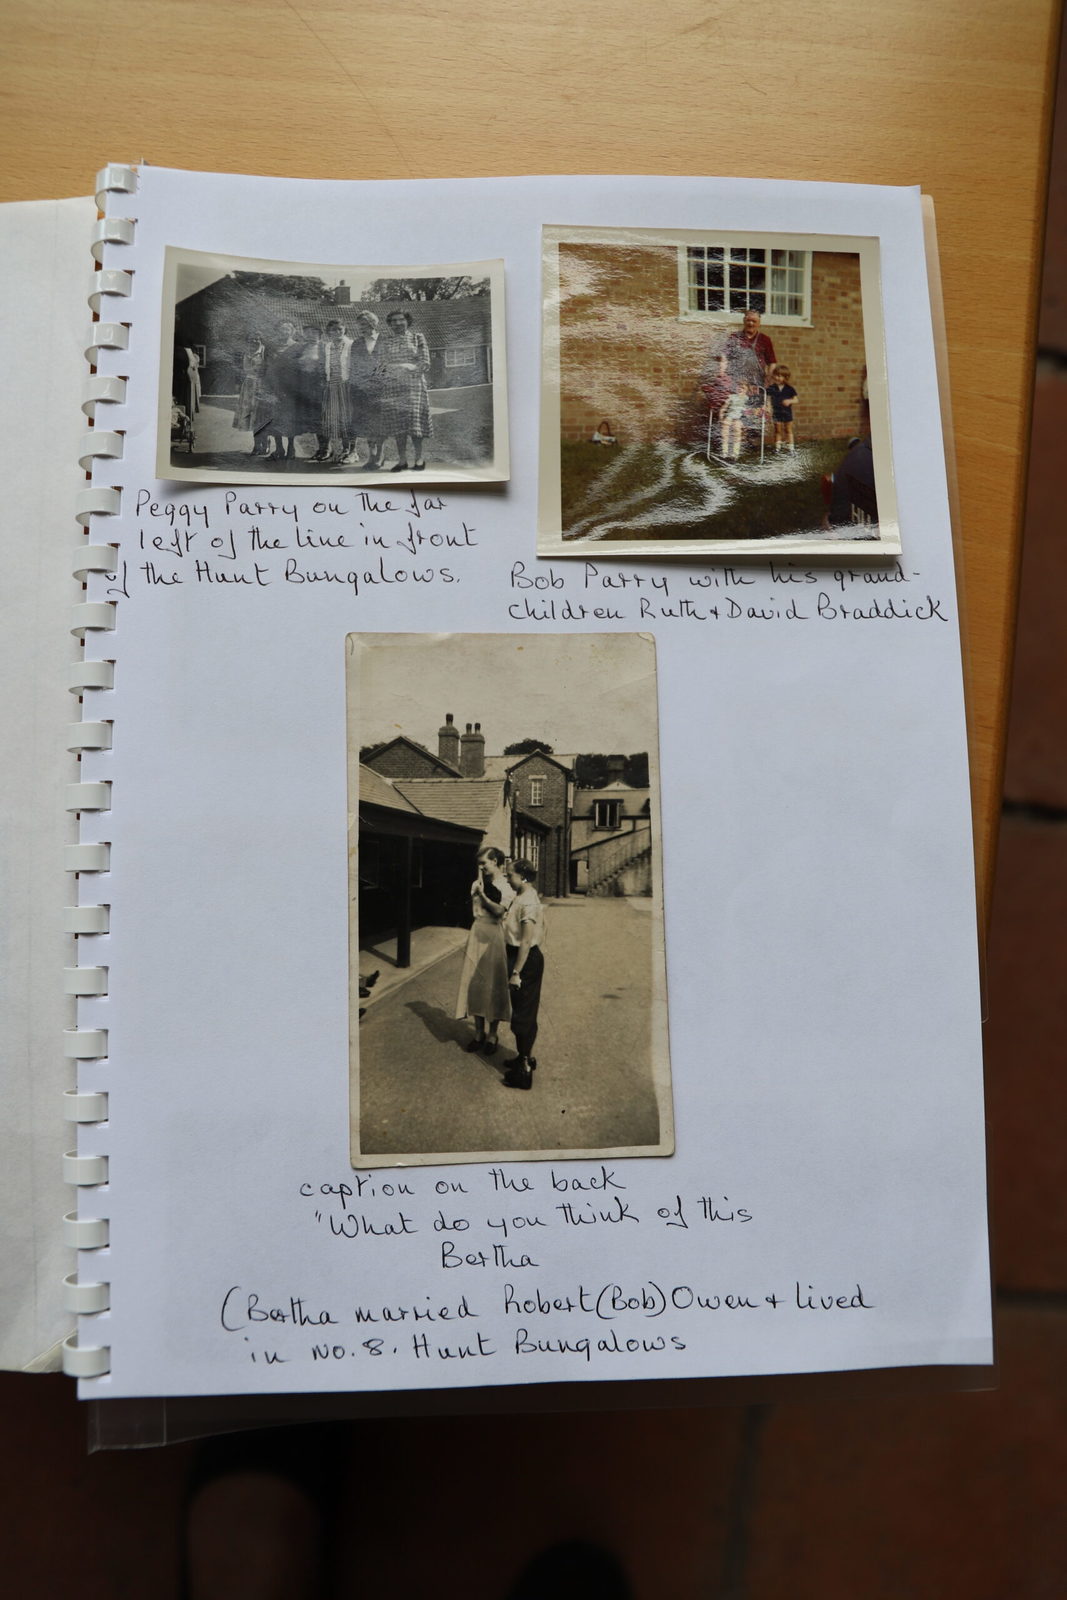 Peggy Parry on the far
left of the line in front
of the Hunt Bungalows.
Bob Parry with his grand-
children Ruth + David Braddick
caption on the back
"What do you think of this
Bertha
(Bertha married Robert (Bob) Owen + lived
in No. 8. Hunt Bungalows